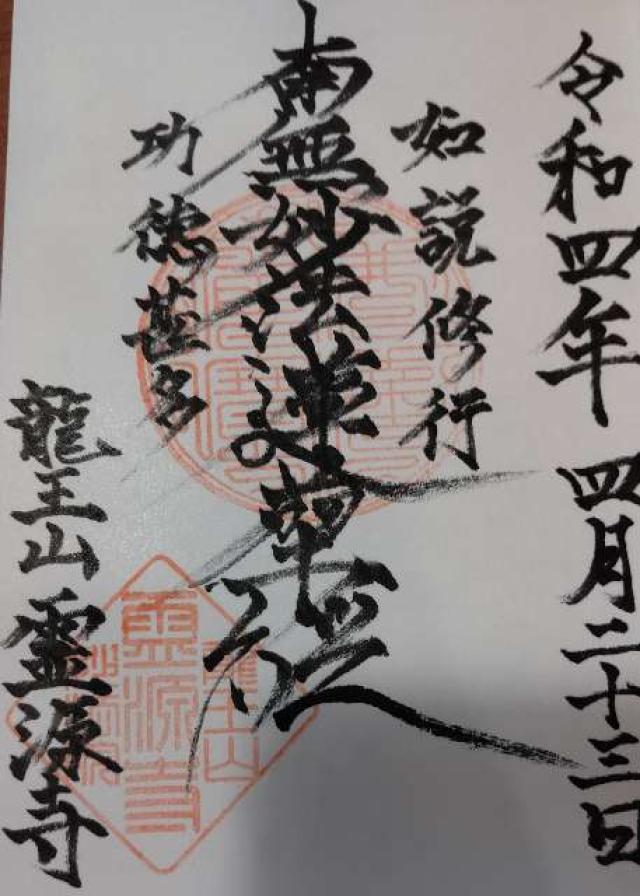 令和四年 四月二十三日
如説修行
南無妙法蓮華経
功徳甚多
龍王山 霊源寺
龍王山
霊源寺